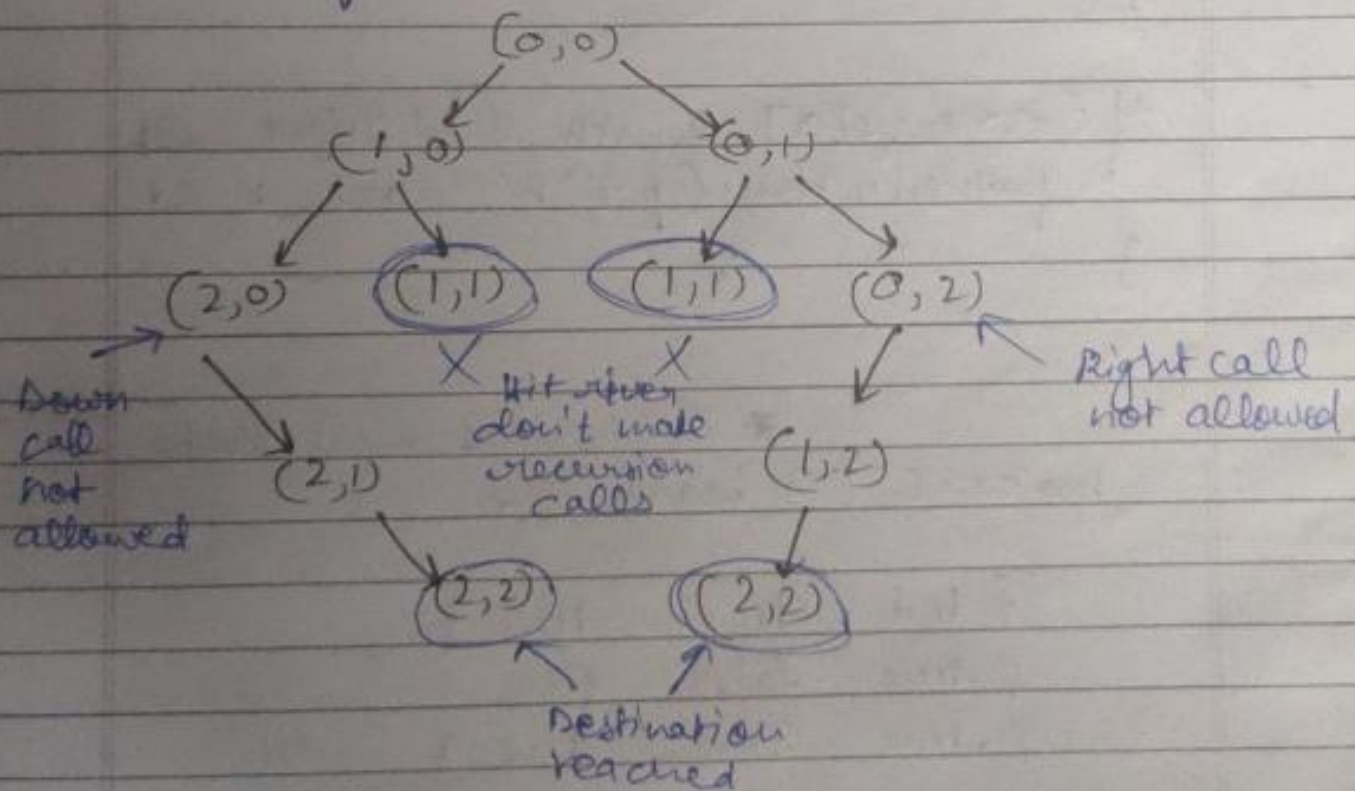 (0,0)
(1,0) (0,1)
(2,0) (1,1) (1,1) (0,2)
X X
Down
call
not
allowed
Hit river
don't make
recursion
calls
Right call
not allowed
(2,1) (1,2)
(2,2) (2,2)
Destination
reached